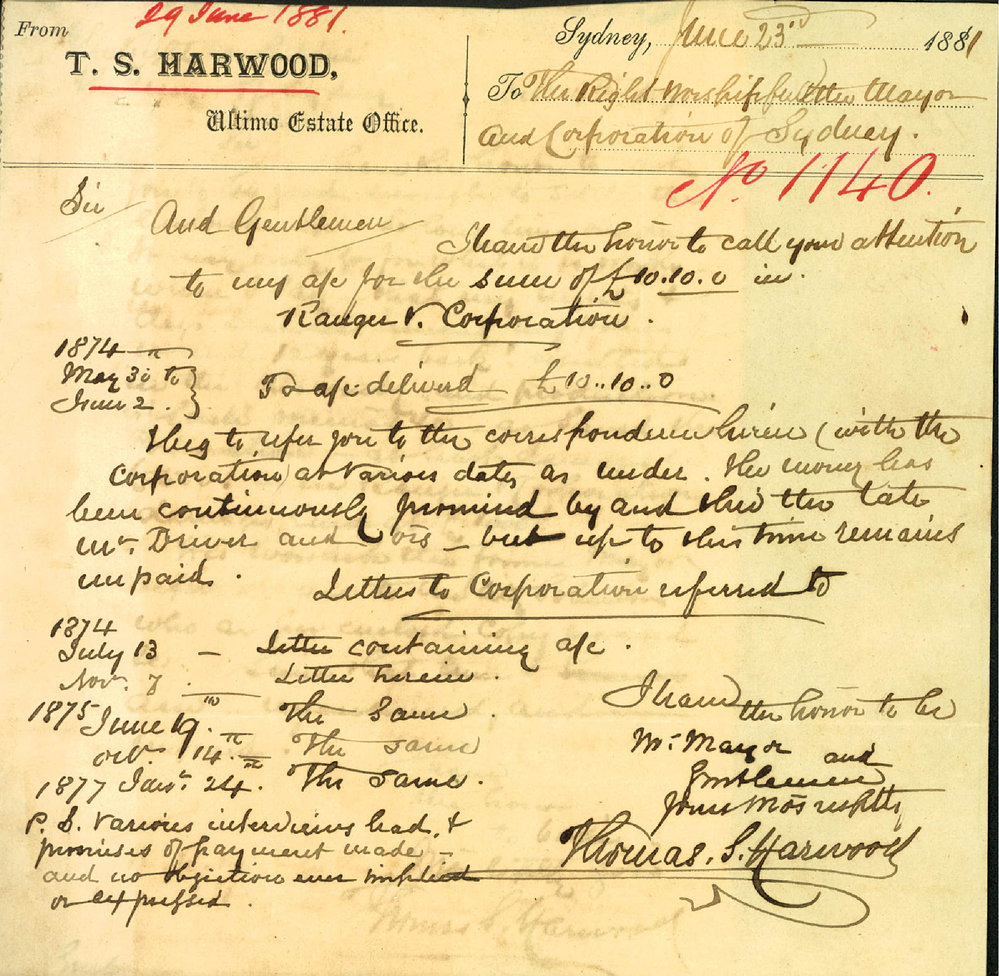 29 June 1881.
From
T. S. HARWOOD,
Ultimo Estate Office.
Sydney, June 23rd 1881
To The Right Worshipful the Mayor
and Corporation of Sydney.
No 1140.
Sir
And Gentlemen
I have the honor to call your attention
to my a/c for the sum of £10.10.0 in
Ranger v. Corporation.
1874
May 30 to
June 2.
To a/c delivered £10..10..0
I beg to refer you to the correspondence herein (with the
Corporation) at various dates as under. The money has
been continuously promised by and thro the late
Mr. Driver and ors - but up to this time remains
unpaid.
Letters to Corporation referred to
1874
July 13 - Letter containing a/c.
Novr. 7 Letter herein.
1875 June 19th The same.
Octr. 14th The same
1877 Jany. 24th The same.
I have
the honor to be
Mr. Mayor and
Gentlemen
Your Most respectfly
Thomas. S. Harwood
P.S. Various interviews had, &
promises of payment made -
and no objection ever implied
or expressed.